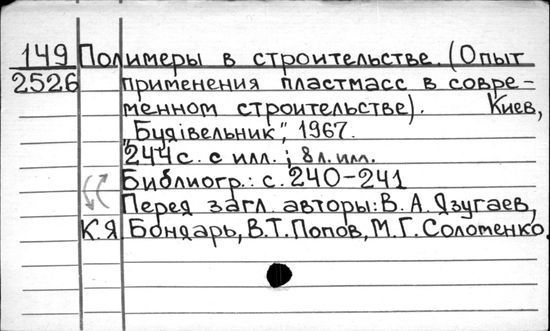 149 Полимеры в строительстве. (Опыт
2526 применения пластмасс в совре-
менном строительстве). Киев,
„Будівельник”, 1967.
244 с. с илл.; 8 л. илл.
Библиогр.: с. 240-241
Перед загл. авторы: В. А. Язугаев,
К. Я. Бондарь, В. Т. Попов, М. Г. Соломенко.